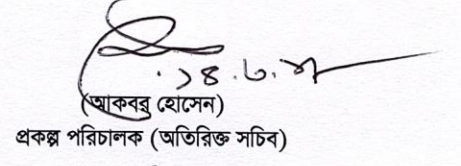 (আকবর হোসেন)
প্রকল্প পরিচালক (অতিরিক্ত সচিব)